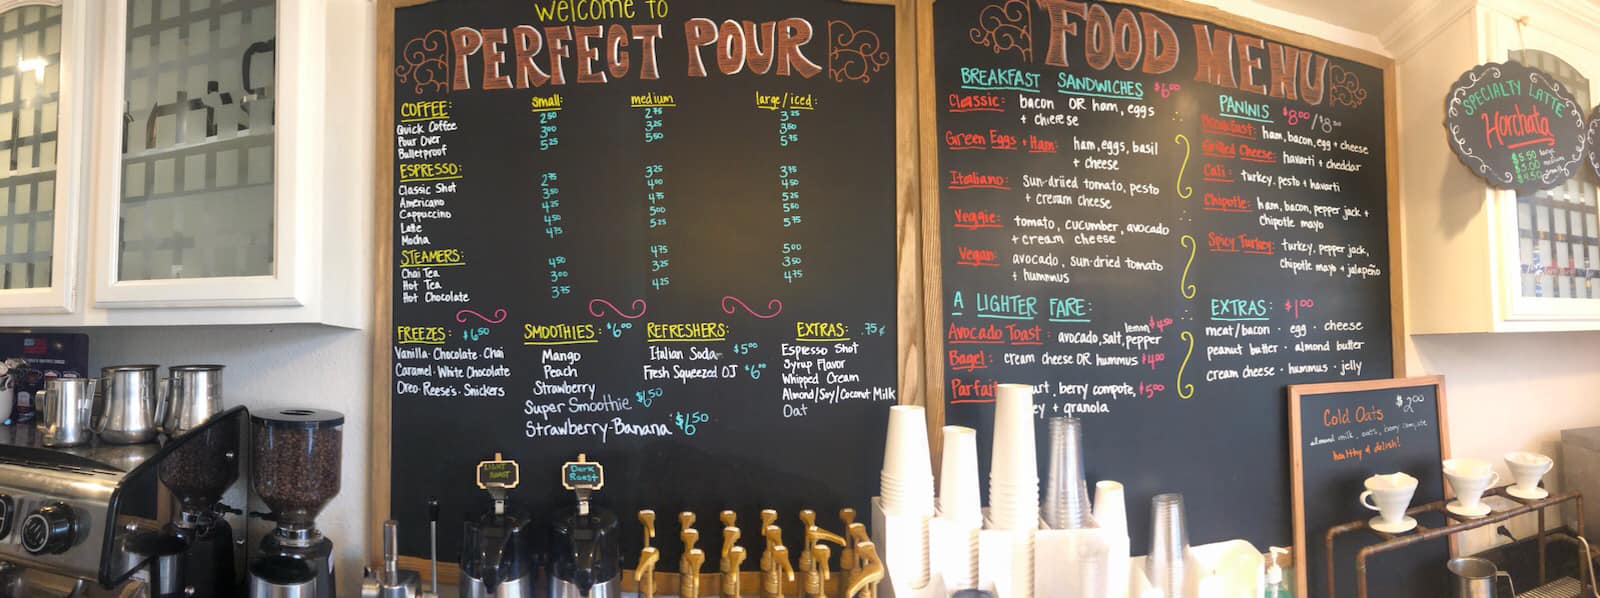 welcome to
PERFECT POUR
COFFEE: small: medium large/iced:
Quick Coffee 2⁵⁰ 2⁷⁵ 3²⁵
Pour Over 3⁰⁰ 3²⁵ 3⁵⁰
Bulletproof 5²⁵ 5⁵⁰ 5⁷⁵
ESPRESSO:
Classic Shot 2⁷⁵ 3²⁵ 3⁷⁵
Americano 3⁵⁰ 4⁰⁰ 4⁵⁰
Cappuccino 4²⁵ 4⁷⁵ 5²⁵
Latte 4⁵⁰ 5⁰⁰ 5⁵⁰
Mocha 4⁷⁵ 5²⁵ 5⁷⁵
STEAMERS:
Chai Tea 4⁵⁰ 4⁷⁵ 5⁰⁰
Hot Tea 3⁰⁰ 3²⁵ 3⁵⁰
Hot Chocolate 3⁷⁵ 4²⁵ 4⁷⁵
FREEZES: $6⁵⁰
Vanilla · Chocolate · Chai
Caramel · White Chocolate
Oreo · Reese's · Snickers
SMOOTHIES: $6⁰⁰
Mango
Peach
Strawberry
Super Smoothie $6⁵⁰
Strawberry-Banana $6⁵⁰
REFRESHERS:
Italian Soda $5⁰⁰
Fresh Squeezed OJ $6⁰⁰
EXTRAS: .75¢
Espresso Shot
Syrup Flavor
Whipped Cream
Almond/Soy/Coconut Milk
Oat
LIGHT ROAST
Dark
Roast
FOOD MENU
BREAKFAST SANDWICHES $6⁰⁰
Classic: bacon OR ham, eggs
+ cheese
Green Eggs + Ham: ham, eggs, basil
+ cheese
Italiano: Sun-dried tomato, pesto
+ cream cheese
Veggie: tomato, cucumber, avocado
+ cream cheese
Vegan: avocado, sun-dried tomato
+ hummus
A LIGHTER FARE:
Avocado Toast: avocado, salt, lemon pepper $4⁵⁰
Bagel: cream cheese OR hummus $4⁰⁰
Parfait berry compote, $5⁰⁰
+ granola
PANINIS $8⁰⁰/$8
Breakfast: ham, bacon, egg + cheese
Grilled Cheese: havarti + cheddar
Cali: turkey, pesto + havarti
Chipotle: ham, bacon, pepper jack +
chipotle mayo
Spicy Turkey: turkey, pepper jack,
chipotle mayo + jalapeño
EXTRAS: $1⁰⁰
meat/bacon · egg · cheese
peanut butter · almond butter
cream cheese · hummus · jelly
SPECIALTY LATTE
Horchata
$5.50 large
$5.00 medium
$4.50 small
Cold Oats $2⁰⁰
almond milk, oats, berry compote
healthy & delish!